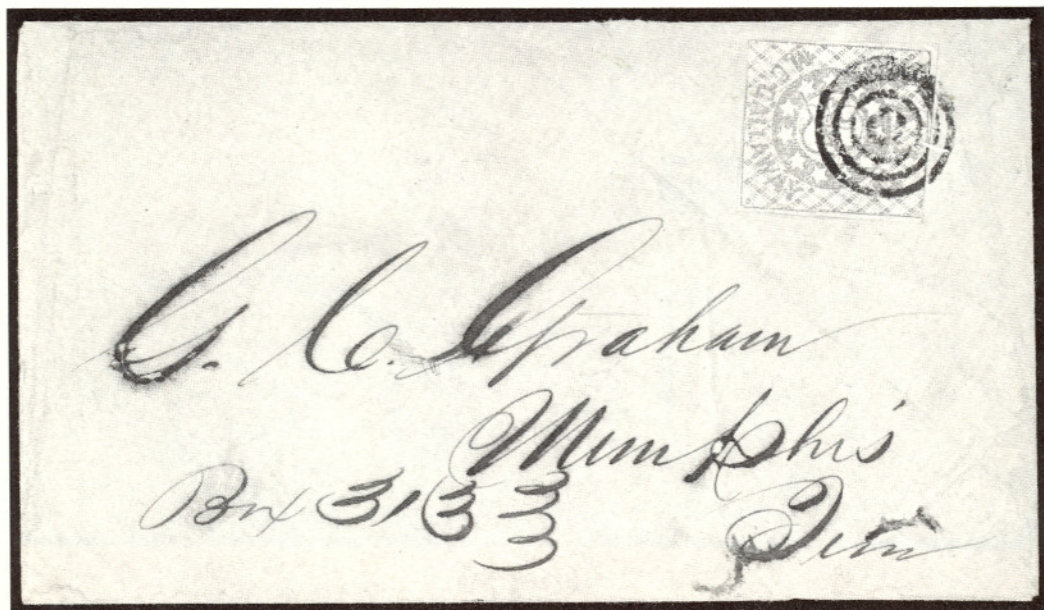 M.C.GALLAWAY.
G. C. Graham
Memphis
Box 3133
Tenn